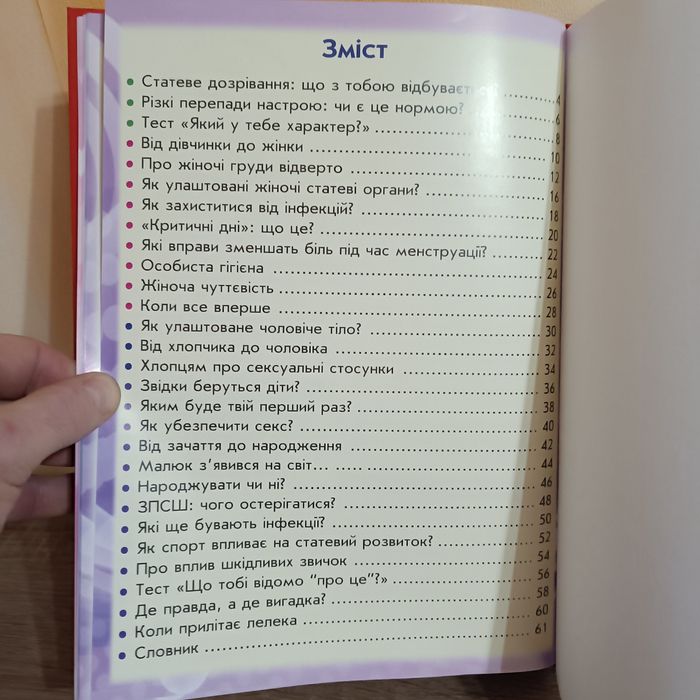 Зміст
Статеве дозрівання: що з тобою відбувається? 4
Різкі перепади настрою: чи є це нормою? 6
Тест «Який у тебе характер?» 8
Від дівчинки до жінки 10
Про жіночі груди відверто 12
Як улаштовані жіночі статеві органи? 16
Як захиститися від інфекцій? 18
«Критичні дні»: що це? 20
Які вправи зменшать біль під час менструації? 22
Особиста гігієна 24
Жіноча чуттєвість 26
Коли все вперше 28
Як улаштоване чоловіче тіло? 30
Від хлопчика до чоловіка 32
Хлопцям про сексуальні стосунки 34
Звідки беруться діти? 36
Яким буде твій перший раз? 38
Як убезпечити секс? 40
Від зачаття до народження 42
Малюк з’явився на світ... 44
Народжувати чи ні? 46
ЗПСШ: чого остерігатися? 48
Які ще бувають інфекції? 50
Як спорт впливає на статевий розвиток? 52
Про вплив шкідливих звичок 54
Тест «Що тобі відомо “про це”?» 56
Де правда, а де вигадка? 58
Коли прилітає лелека 60
Словник 61